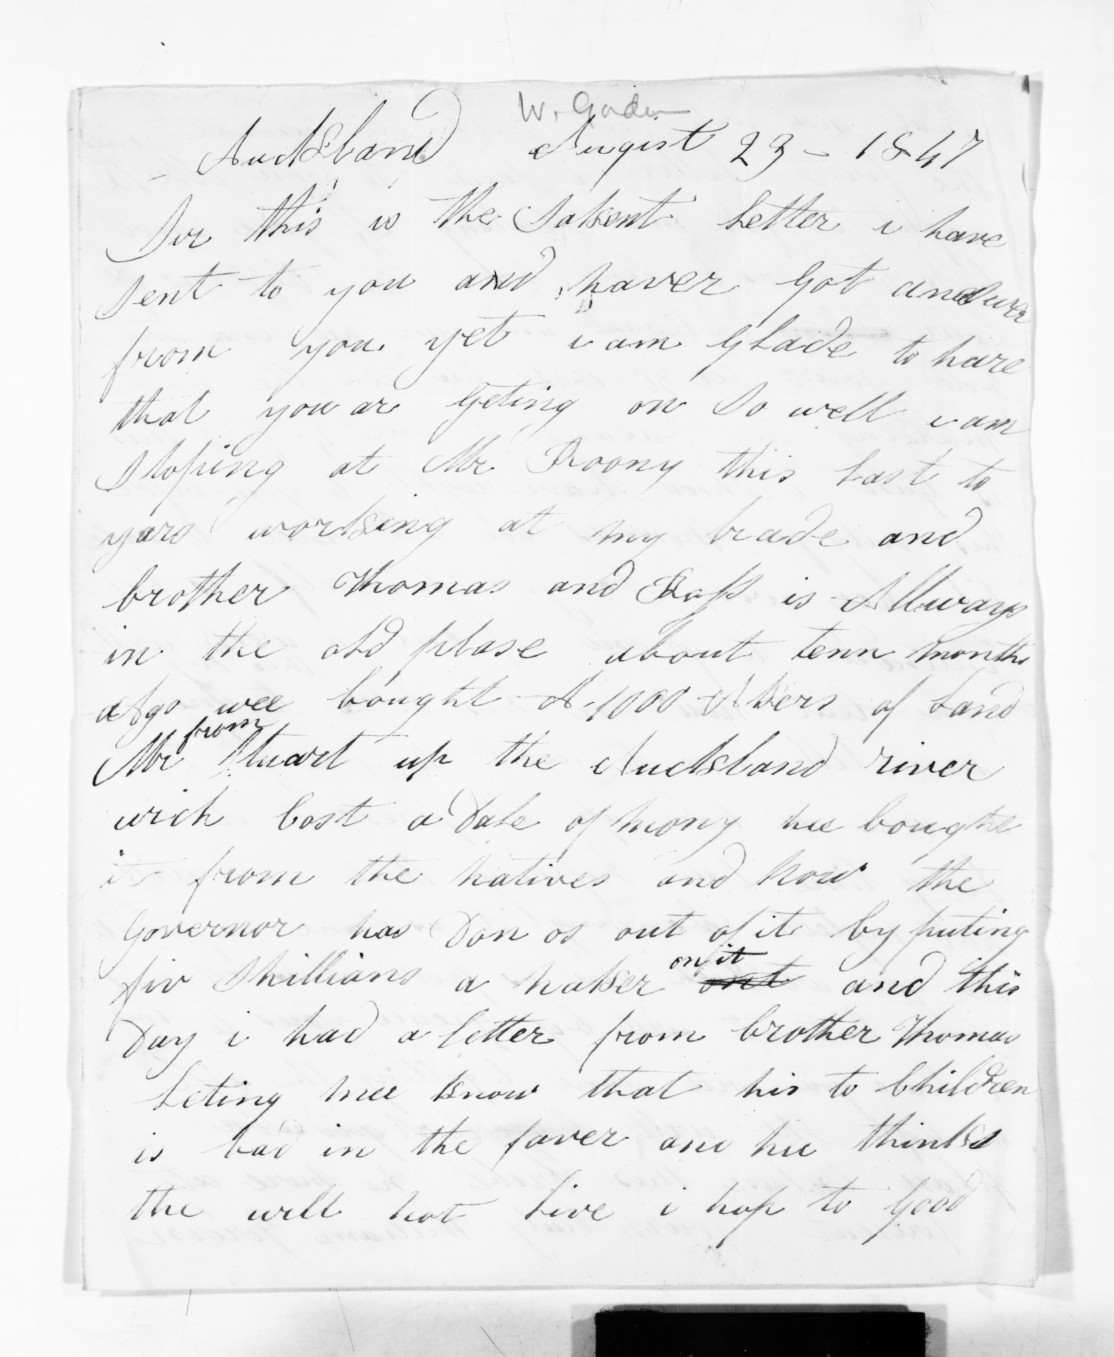 W. Gorden
Auckland August 23 - 1847
Sir this is the Sakent Letter i have
Sent to you and naver Got answer
from you yet i am Glade to hare
that you ar Geting on So well i am
Stoping at Mr Roony this Last to
yars working at my trade and
brother Thomas and is Allways
in the old plase about tenn months
Ago wee bought A 1000 Akers of Land
from
Mr Stuart up the Auckland river
wich Cost a Dale of mony hee bought
it from the natives and now the
Governor has Don os out of it by puting
fiv Shillians a naker on it and this
Day i had a letter from brother Thomas
Leting mee know that his to Children
is bad in the faver and hee thinks
the will not Live i hop to Good